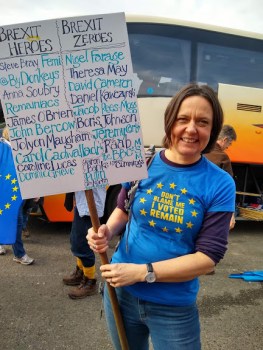 BREXIT
HEROES
Steve Bray
@ByDonkeys
Anna Soubry
Remoaniacs
James O'Brien
John Bercow
Jolyon Maugham
Carol Cadwalladr
Caroline Lucas
Dominic Grieve
BREXIT
ZEROES
Nigel Farage
Theresa May
David Cameron
Daniel Kawczynski
Jacob Rees Mogg
Boris Johnson
Jeremy
DON'T
BLAME ME
I VOTED
REMAIN